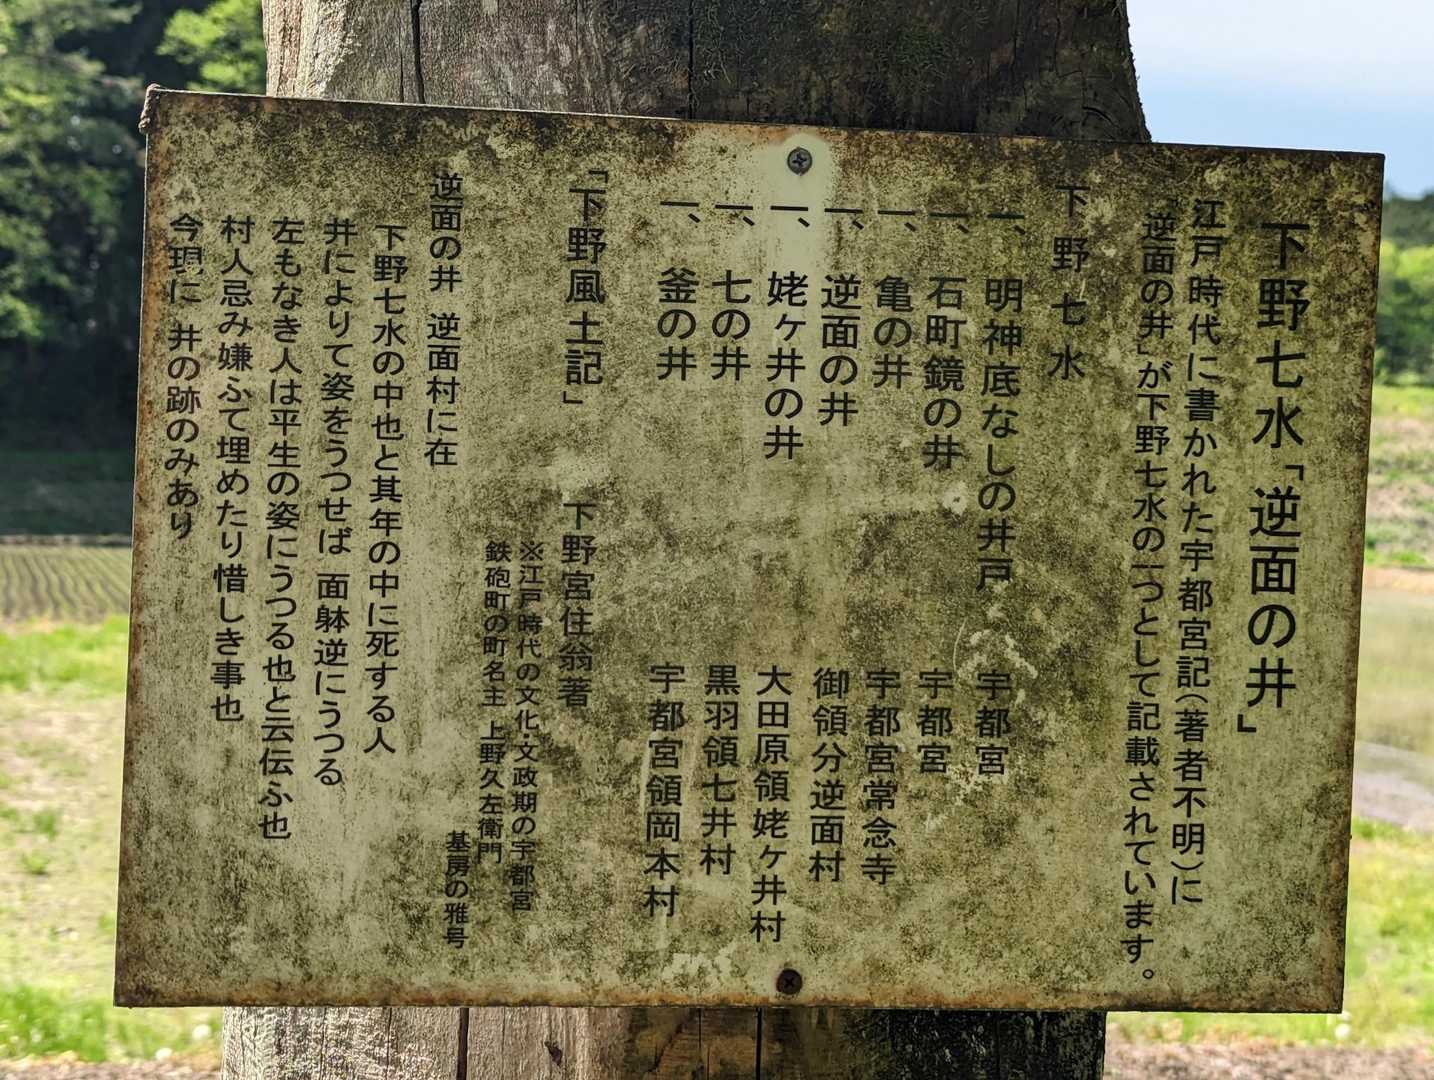 下野七水「逆面の井」
江戸時代に書かれた宇都宮記(著者不明)に
「逆面の井」が下野七水の一つとして記載されています。
下野七水
一、明神底なしの井戸 宇都宮
一、石町鏡の井 宇都宮
一、亀の井 宇都宮常念寺
一、逆面の井 御領分逆面村
一、姥ヶ井の井 大田原領姥ヶ井村
一、七の井 黒羽領七井村
一、釜の井 宇都宮領岡本村
「下野風土記」 下野宮住翁著
※江戸時代の文化・文政期の宇都宮
鉄砲町の町名主 上野久左衛門
基房の雅号
逆面の井 逆面村に在
下野七水の中也と其年の中に死する人
井によりて姿をうつせば 面躰逆にうつる
左もなき人は平生の姿にうつる也と云伝ふ也
村人忌み嫌ふて埋めたり惜しき事也
今現に 井の跡のみあり